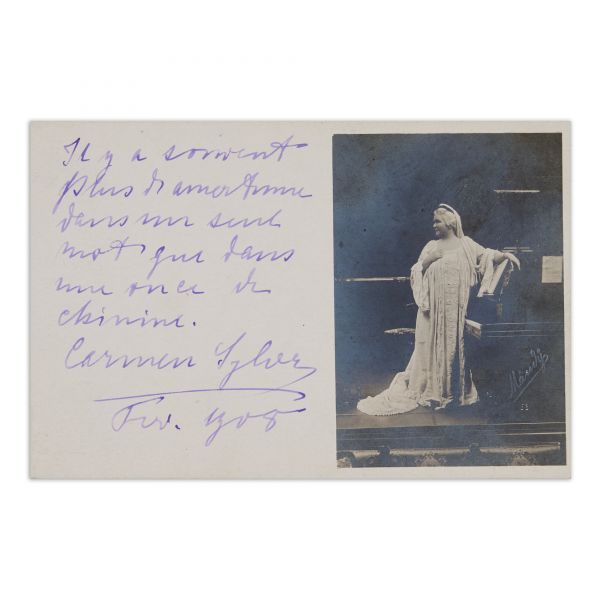 Il y a souvent
plus d'amertume
dans un seul
mot que dans
une once de
chinine.
Carmen Sylva
Fev. 1908
Mandy
53